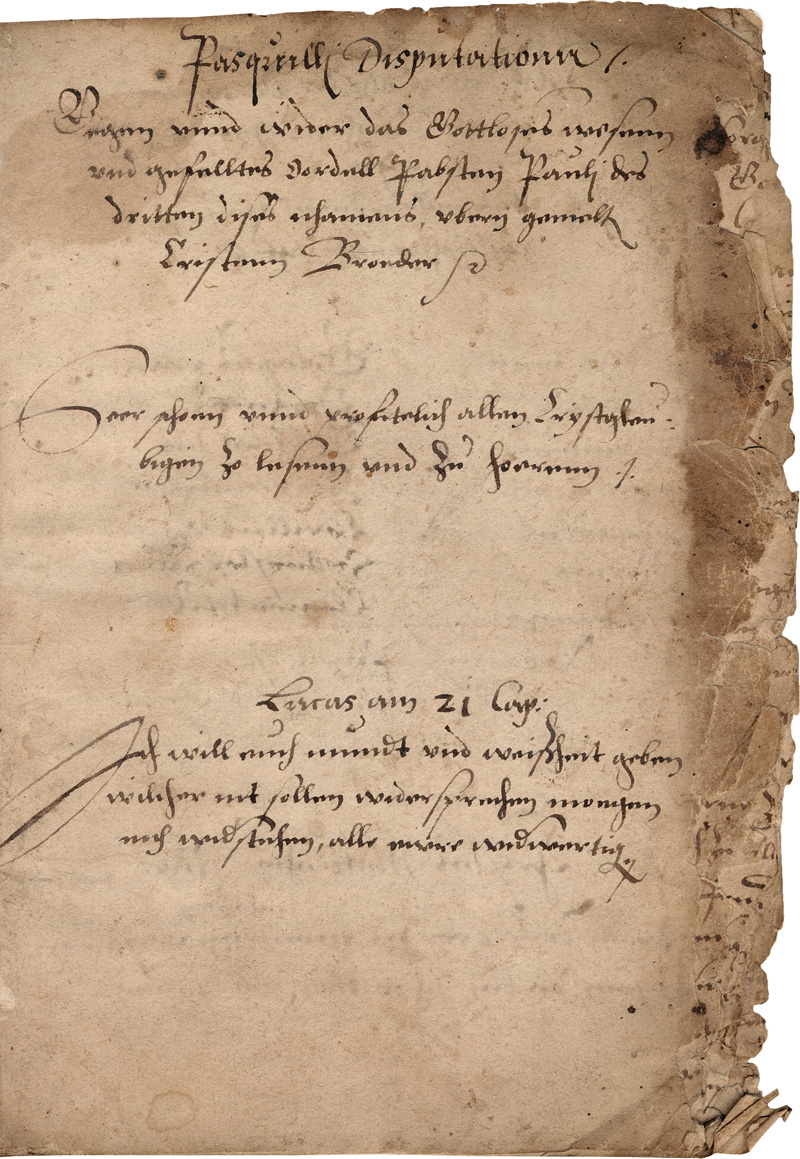 Pasquilli Disputationn /.
Gegen vnnd wider das Gottloses wesenn
vnd gefelltes Vordell Pabsten Pauli des
dritten dises nhamens, vbern gemelt
Cristenn Broeder
Seer schoen vnnd profitelich allen Crystgleu-
bigen zo lesenn vnd zu hoerenn ./.
Lucas am 21 Cap:
Ich will euch mundt vnd weißheit geben
wilcher nit sollen widersprechen moegen
noch widstehen, alle ewre widwertig